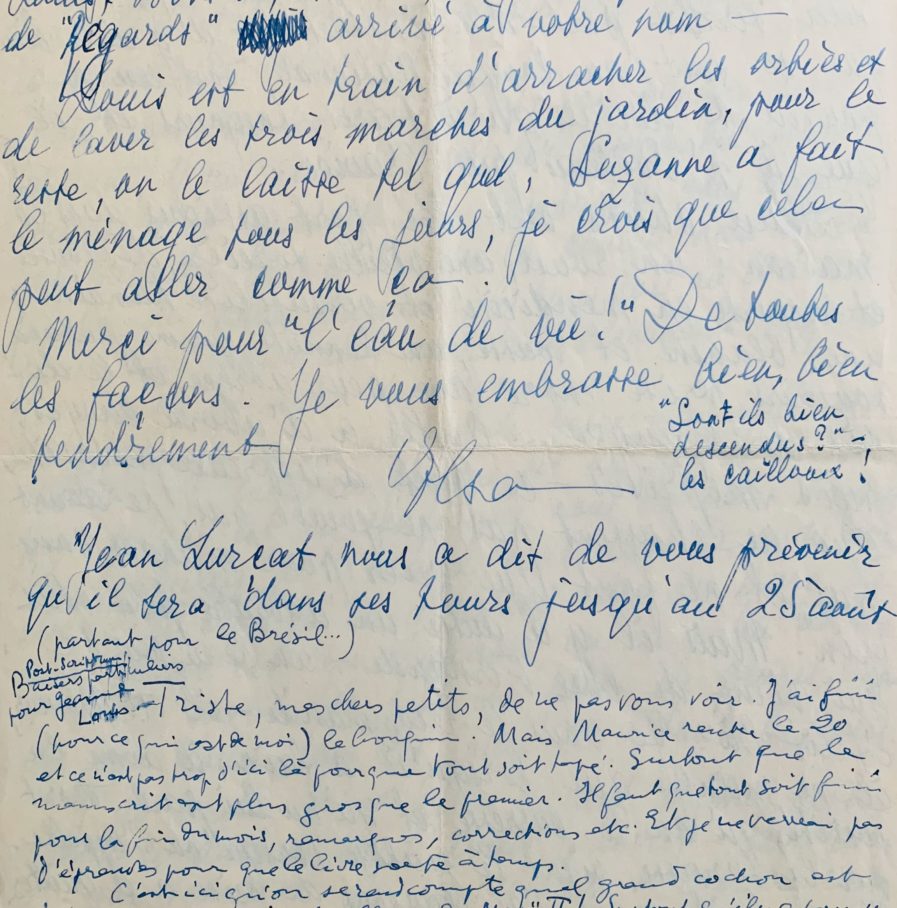 de "Regards" arrivé à votre nom —
Louis est en train d'arracher les orties et
de laver les trois marches du jardin, pour le
reste, on le laisse tel quel, Suzanne a fait
le ménage tous les jours, je crois que cela
peut aller comme ça.
Merci pour "l'eau de vie!" De toutes
les façons. Je vous embrasse bien, bien
tendrement
Elsa
"Sont ils bien
descendus?" —
les cailloux!
"Jean Lurcat nous a dit de vous prévenir
qu'il sera dans ses tours jusqu'au 25 août
(partant pour le Brésil...)
Post-Scriptum
Baisers particuliers
pour Jeanne
Louis. — Triste, mes chers petits, de ne pas vous voir. J'ai fini
(pour ce qui est de moi) le bouquin. Mais Maurice rentre le 20
et ce n'est pas trop d'ici là pour que tout soit tapé. Surtout que le
manuscrit est plus gros que le premier. Il faut que tout soit fini
pour la fin du mois, remarques, corrections etc. Et je ne verrai pas
d'épreuves pour que le livre sorte à temps.
C'est ici qu'on se rend compte quel grand cochon est